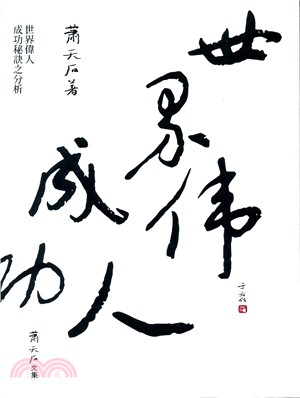 世界伟人
成功
蕭天石著
世界偉人
成功秘訣之分析
蕭天石文集